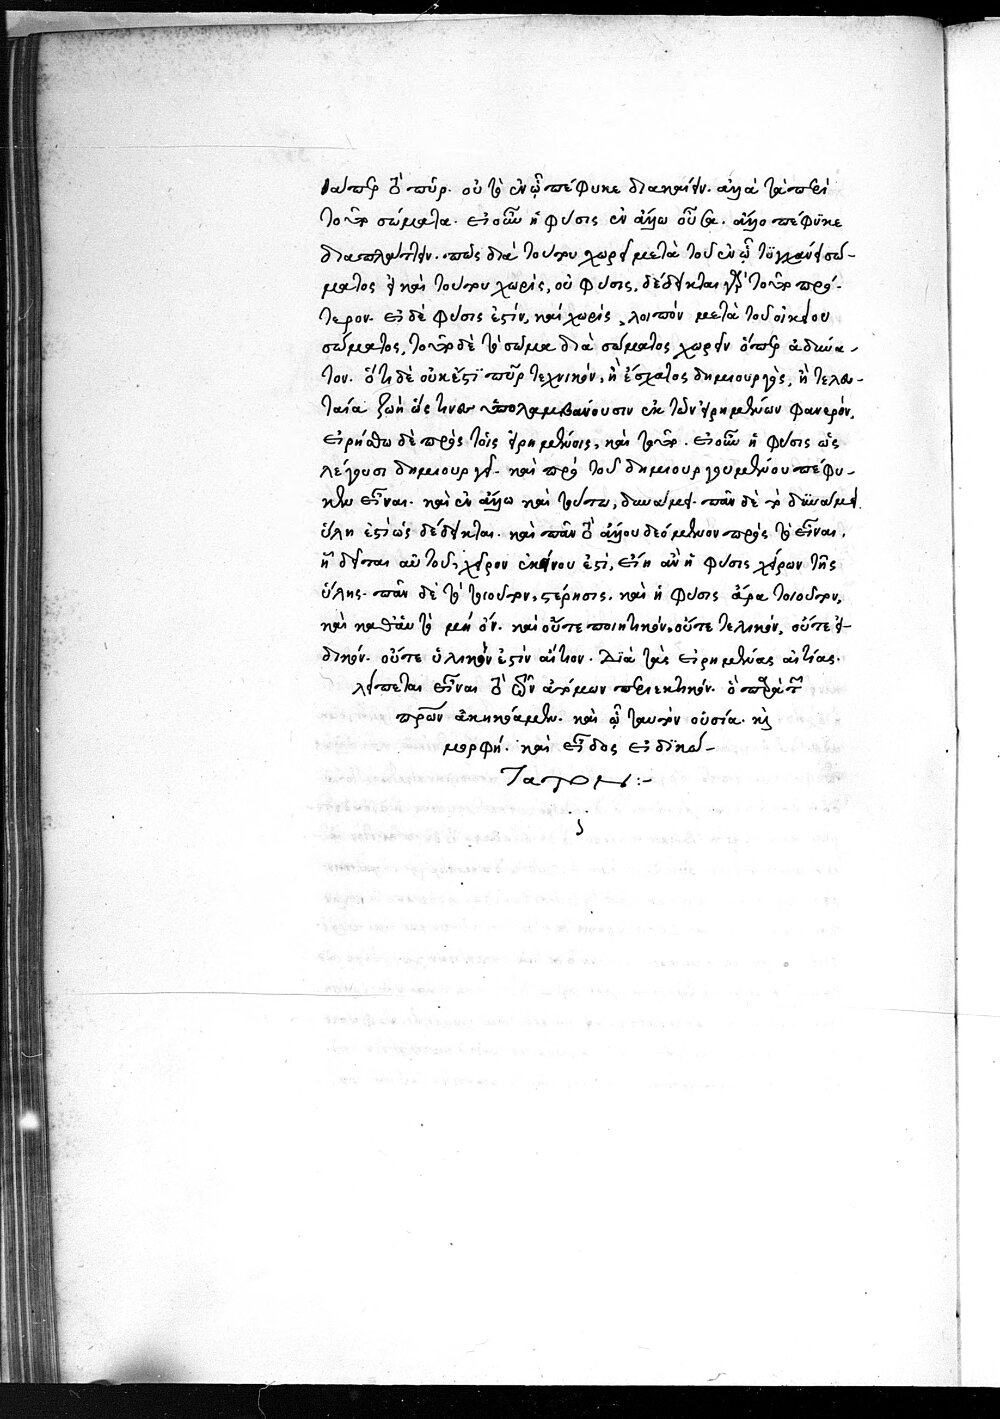 ὥσπερ τὸ πῦρ. οὐ τὸ ἐν ᾧ πέφυκε διακαίειν. ἀλλὰ τὰ περὶ
τοῦτο σώματα. εἰ οὖν ἡ φύσις ἐν ἄλλω οὖσα. ἄλλο πέφυκε
διαπλάττειν. πῶς διὰ τούτου χωρεῖ μετὰ τοῦ ἐν ᾧ τυγχάνει σώ-
ματος ἢ καὶ τούτου χωρὶς, οὐ φύσις, δέδεικται γὰρ τοῦτο πρό-
τερον. εἰ δὲ φύσις ἐστίν, καὶ χωρὶς, λοιπὸν μετὰ τοῦ οἰκείου
σώματος, τοῦτο δὲ τὸ σῶμα διὰ σώματος χωρεῖν ὅπερ ἀδύνα-
τον. ὅτι δὲ οὐκ ἔστι πῦρ τεχνικόν, ἢ ἔσχατος δημιουργὸς, ἢ τελευ-
ταία ζωὴ ὥς τινες ὑπολαμβάνουσιν ἐκ τῶν εἰρημένων φανερόν,
εἰρήσθω δὲ πρὸς τοῖς εἰρημένοις, καὶ τοῦτο. εἰ οὖν ἡ φύσις ὡς
λέγουσι δημιουργεῖ. καὶ πρὸ τοῦ δημιουργουμένου πέφυ-
κεν εἶναι. καὶ ἐν ἄλλω καὶ τούτω, δυνάμει. πᾶν δὲ τὸ δυνάμει
ὕλη ἐστὶ ὡς δέδεικται. καὶ πᾶν τὸ ἄλλου δεόμενον πρὸς τὸ εἶναι,
ἢ δεῖται αὐτοῦ, χεῖρον ἐκείνου ἐστί, εἴη ἂν ἡ φύσις χείρων τῆς
ὕλης. πᾶν δὲ τὸ τοιοῦτον, στέρησις. καὶ ἡ φύσις ἄρα τοιοῦτον,
καὶ καθ' αὑτὸ μὴ ὄν. καὶ οὔτε ποιητικόν, οὔτε τελικόν, οὔτε εἰ-
δικόν. οὔτε ὑλικόν ἐστιν αἴτιον. Διὰ τὰς εἰρημένας αἰτίας.
λείπεται εἶναι τὸ τῶν ἀτόμων περιεκτικόν. ὃ παρὰ τῶν
πρῶν ἀκηκόαμεν. καὶ ᾧ ταυτὸν οὐσία. καὶ
μορφή. καὶ εἶδος εἰδικώ-
τατον:-